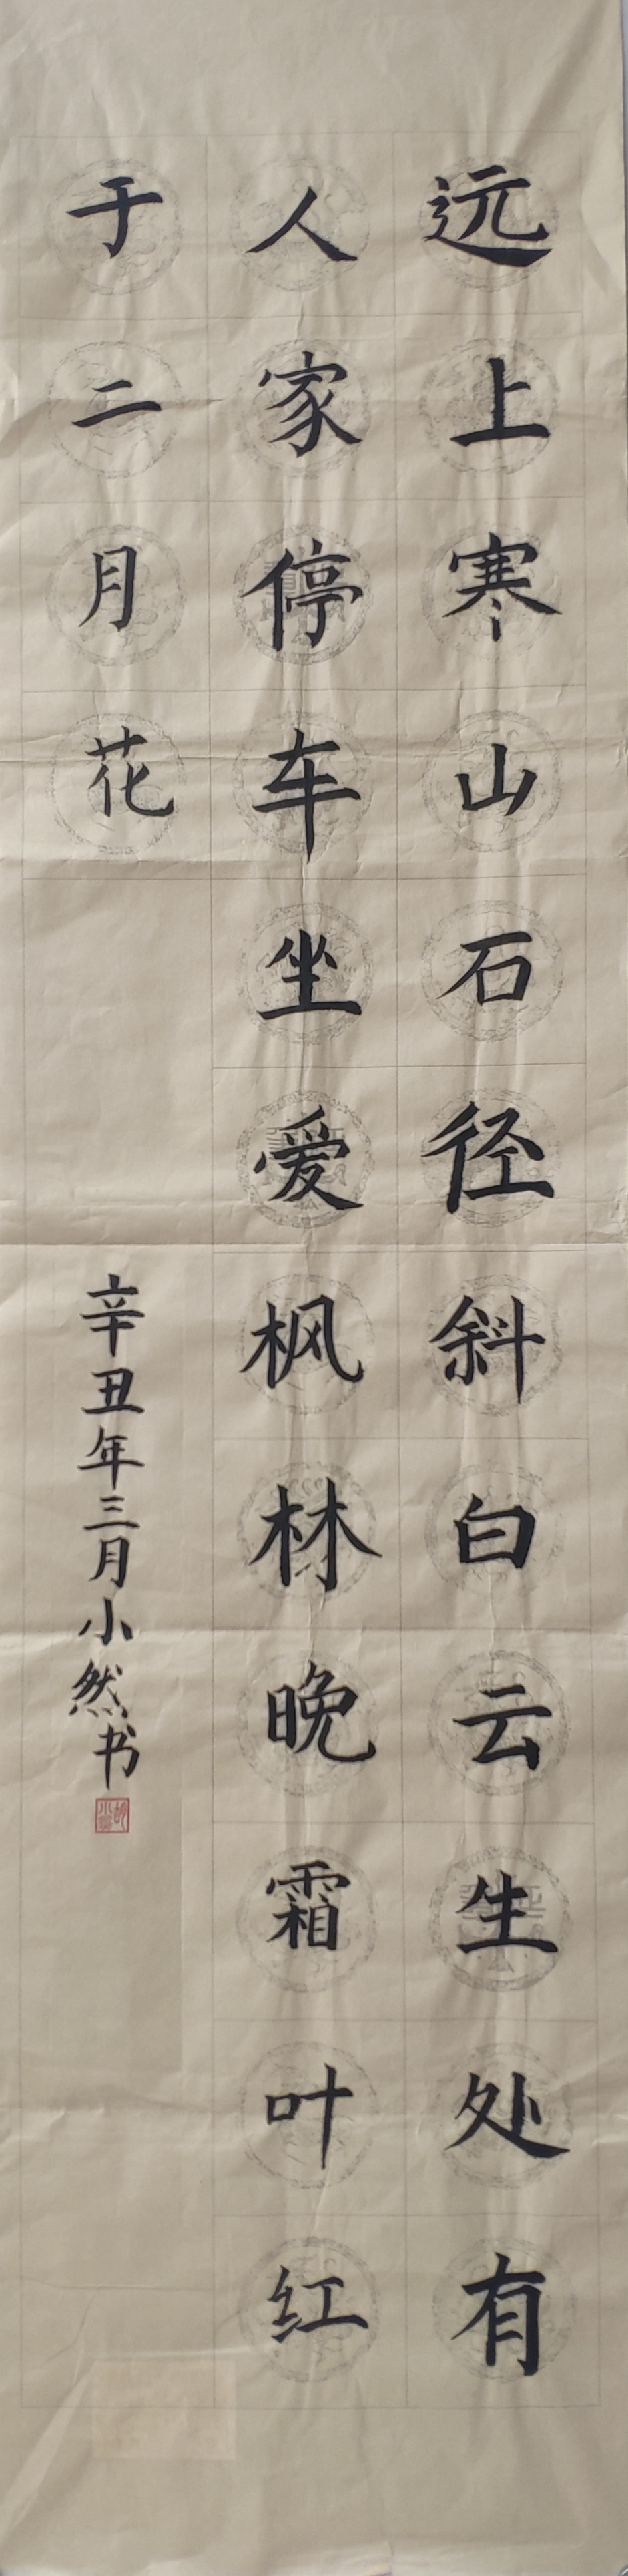 远上寒山石径斜白云生处有
人家停车坐爱枫林晚霜叶红
于二月花
辛丑年三月小然书